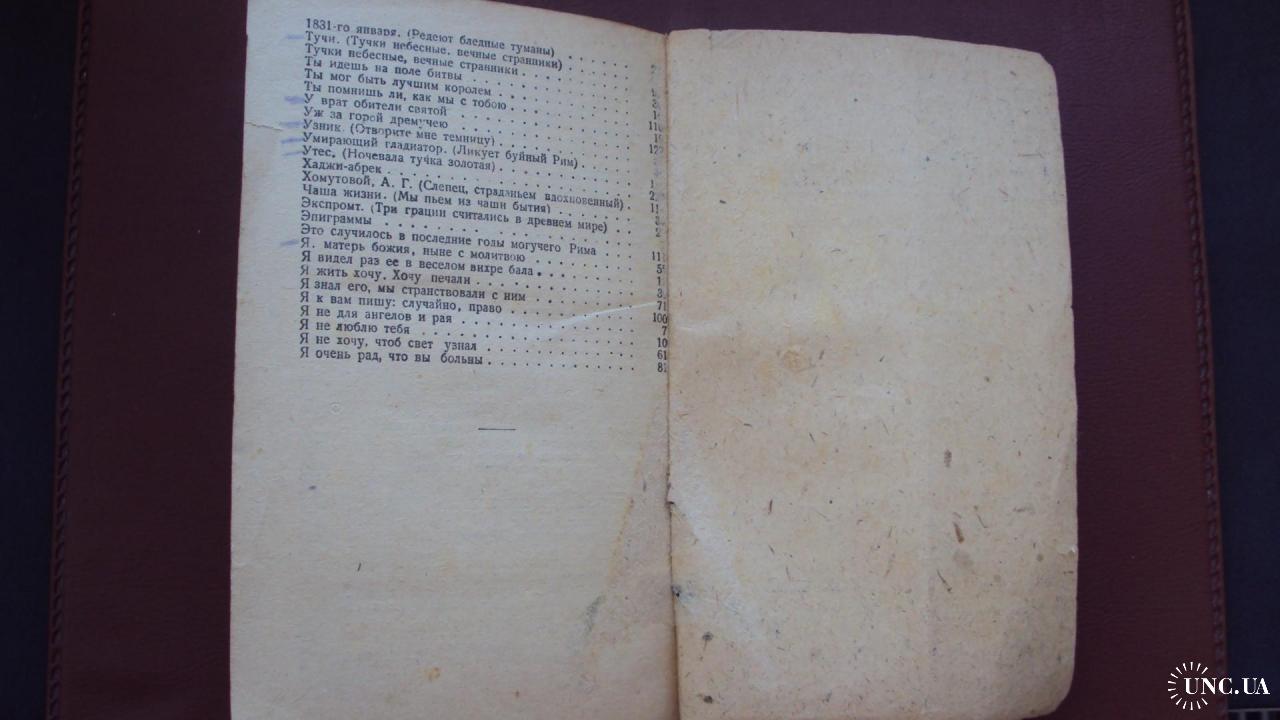 1831-го января. (Редеют бледные туманы) . . . . . .
Тучи. (Тучки небесные, вечные странники) . . . . . .
Тучки небесные, вечные странники . . . . . . . . .
Ты идешь на поле битвы . . . . . . . . . . . . .
Ты мог быть лучшим королем . . . . . . . . . . .
Ты помнишь ли, как мы с тобою . . . . . . . . . .
У врат обители святой . . . . . . . . . . . . .
Уж за горой дремучею . . . . . . . . . . . . .
Узник. (Отворите мне темницу) . . . . . . . . . .
Умирающий гладиатор. (Ликует буйный Рим) . . . . .
Утес. (Ночевала тучка золотая) . . . . . . . . . .
Хаджи-абрек . . . . . . . . . . . . . . . . .
Хомутовой, А. Г. (Слепец, страданьем вдохновенный) .
Чаша жизни. (Мы пьем из чаши бытия) . . . . . . .
Экспромт. (Три грации считались в древнем мире) . .
Эпиграммы . . . . . . . . . . . . . . . . .
Это случилось в последние годы могучего Рима . . .
Я, матерь божия, ныне с молитвою . . . . . . . .
Я видел раз ее в веселом вихре бала . . . . . . .
Я жить хочу. Хочу печали . . . . . . . . . . . .
Я знал его, мы странствовали с ним . . . . . . . .
Я к вам пишу: случайно, право . . . . . . . . . . 71
Я не для ангелов и рая . . . . . . . . . . . . . 100
Я не люблю тебя . . . . . . . . . . . . . . . 7
Я не хочу, чтоб свет узнал . . . . . . . . . . . 10
Я очень рад, что вы больны . . . . . . . . . . . 61
UNC.UA